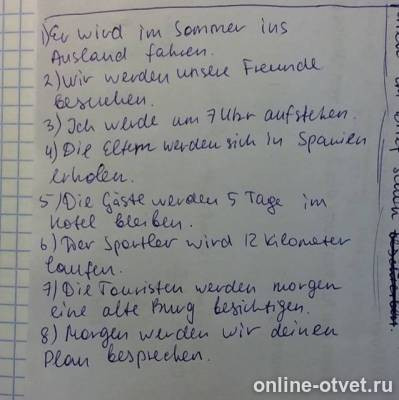 1) Er wird im Sommer ins
Ausland fahren.
2) Wir werden unsere Freunde
besuchen.
3) Ich werde um 7 Uhr aufstehen.
4) Die Eltern werden sich in Spanien
erholen.
5) Die Gäste werden 5 Tage im
Hotel bleiben.
6) Der Sportler wird 12 Kilometer
laufen.
7) Die Touristen werden morgen
eine alte Burg besichtigen.
8) Morgen werden wir deinen
Plan besprechen.
online-otvet.ru